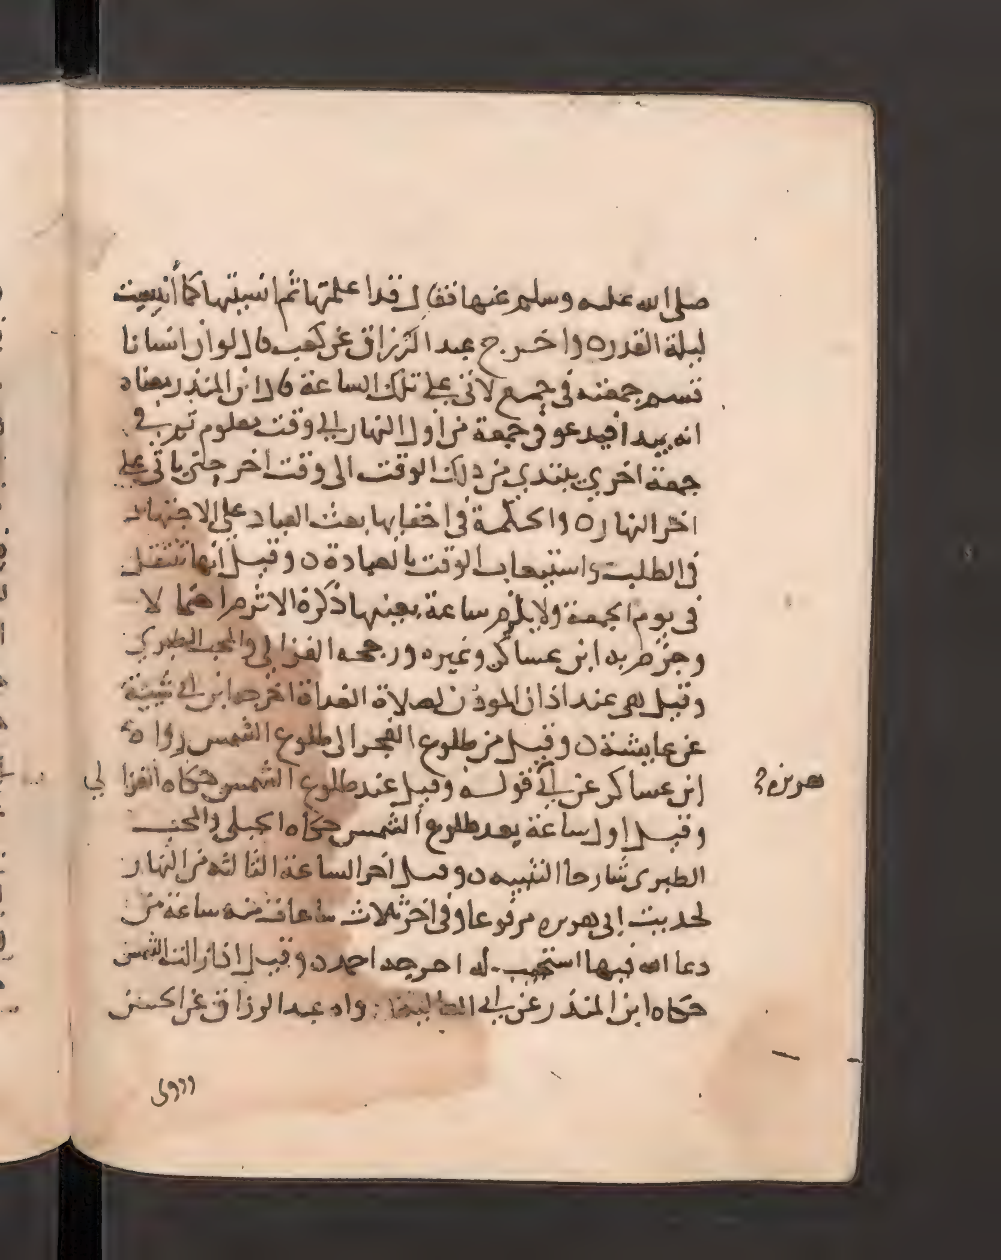 صلى الله عليه وسلم عنها فقال قد اعلمتها ثم انسيتها كما أنسيت
ليلة القدر ٥ واخرج عبد الرزاق عن كعب قال لو ان انسانا
قسم جمعته في جمع لاتى على تلك الساعة قال ابن المنذر معناه
انه يبدا فيدعو في جمعة من اول النهار الى وقت معلوم ثم في
جمعة اخرى يبتدي من ذلك الوقت الى وقت اخر حتى ياتي على
اخر النهار ٥ والحكمة في اخفايها بعث العباد على الاجتهاد
في الطلب واستيعاب الوقت بالعبادة ٥ وقيل انها تنتقل
في يوم الجمعة ولا يلزم ساعة بعينها ذكره الاثرم احتمالا
وجزم به ابن عساكر وغيره ورجحه الغزالي والمحب الطبري
وقيل هي عند اذان الموذن لصلاة الغداة اخرجه ابن ابي شيبة
عن عايشة ٥ وقيل من طلوع الفجر الى طلوع الشمس رواه
ابن عساكر عن ابي قوله وقيل عند طلوع الشمس حكاه الغزا لي
هريرة
وقيل اول ساعة بعد طلوع الشمس حكاه الجيلي والمحب
الطبري شارحا التنبيه ٥ وقيل اخر الساعة الثالثة من النهار
لحديث ابي هريره مرفوعا وفي اخر ثلاث ساعات منه ساعة من
دعا الله فيها استجيب له اخرجه احمد ٥ وقيل اذا زالت الشمس
حكاه ابن المنذر عن ابي العالية ورواه عبد الرزاق عن الحسن
وروى